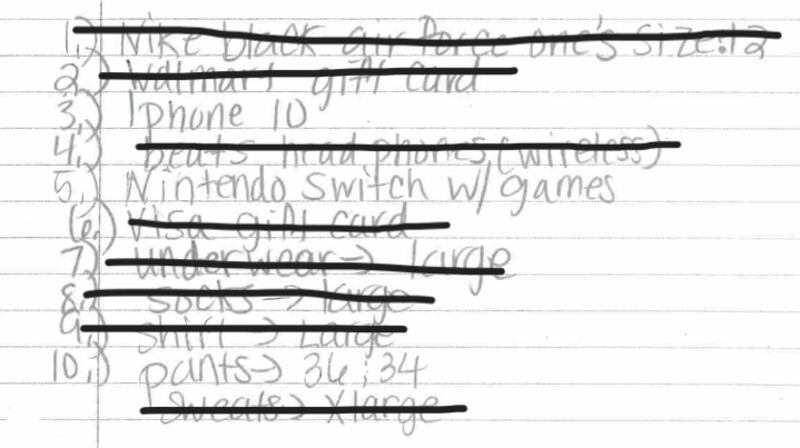 1.) Nike black air Force one's size:12
2.) Walmart gift card
3.) Iphone 10
4.) beats head phones (wireless)
5.) Nintendo Switch w/ games
6.) Visa gift card
7.) underwear → large
8.) socks → large
9.) shirt → Large
10.) pants → 36:34
sweats → Xlarge